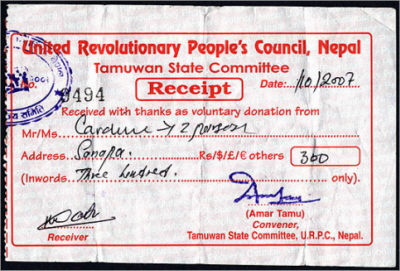 United Revolutionary People's Council, Nepal
Tamuwan State Committee
No. 9494 Receipt Date: /10/2007
Received with thanks as voluntary donation from
Mr/Ms. 2 person
Address. Rs/$/£/€ others 300
(Inwords. Three hundred. only).
(Amar Tamu)
Receiver Convener,
Tamuwan State Committee, U.R.P.C., Nepal.